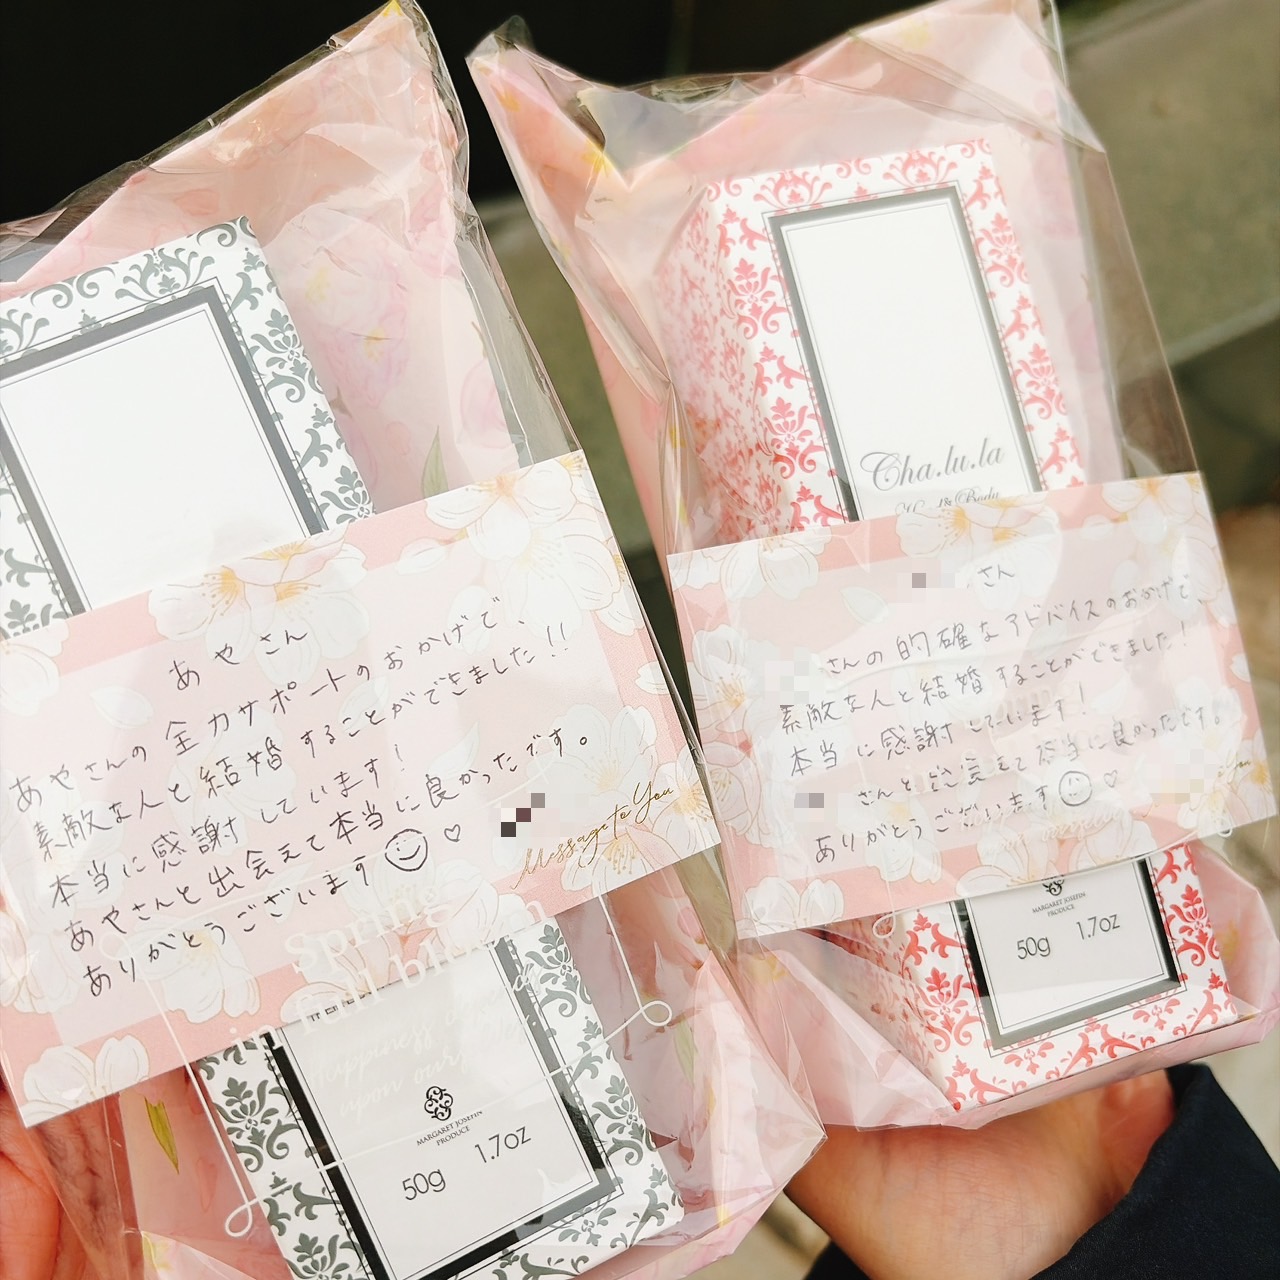 あやさん
あやさんの全力サポートのおかげで、
素敵な人と結婚することができました!!
本当に感謝しています!
あやさんと出会えて本当に良かったです。
ありがとうございます
Message to You
Spring
in full bloom
Happiness
upon our
MARGARET JOSEFIN
PRODUCE
50g 1.7oz
Cha.lu.la
Hand & Body
さん
さんの的確なアドバイスのおかげで、
素敵な人と結婚することができました!
本当に感謝しています!
さんと出会えて本当に良かったです。
ありがとうございます
MARGARET JOSEFIN
PRODUCE
50g 1.7oz